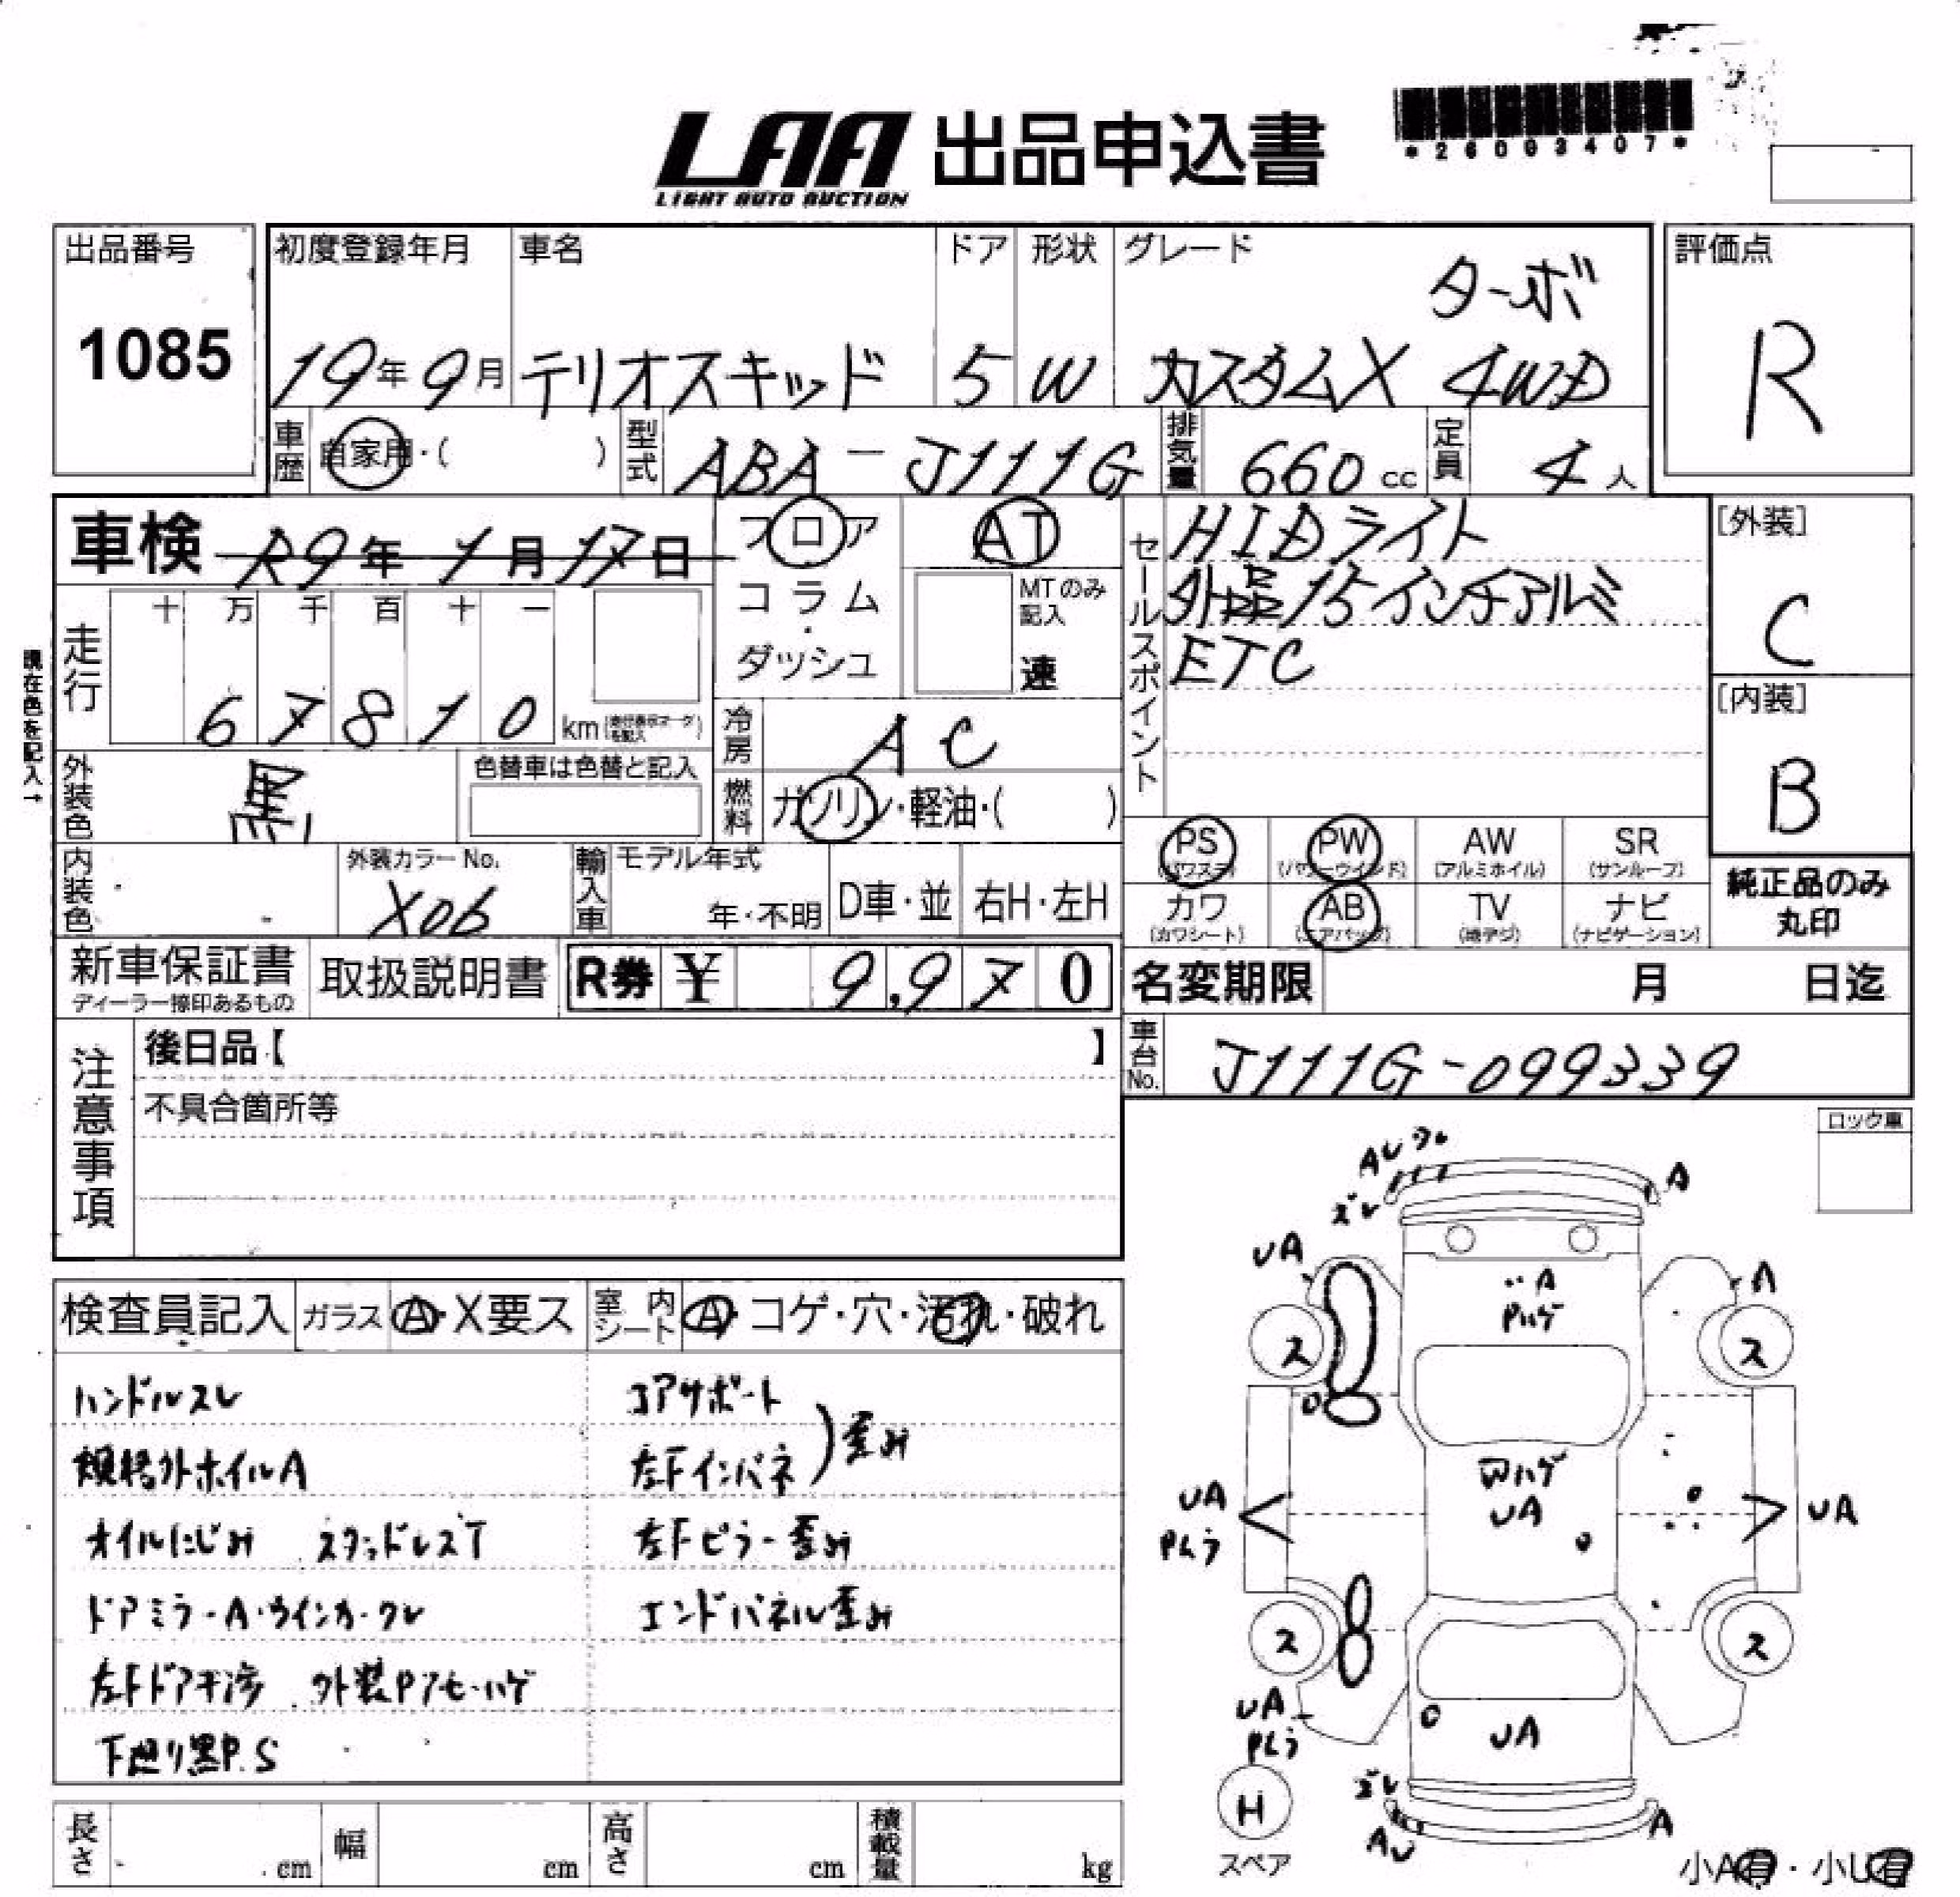 LAA 出品申込書
LIGHT AUTO AUCTION
*26003407*
出品番号
1085
初度登録年月
19年9月
車名
テリオスキッド
ドア
5
形状
W
グレード
ターボ
カスタムX 4WD
評価点
R
車歴
自家用・( )
型式
ABA-J111G
排気量
660 cc
定員
4 人
車検 R9年1月17日
フロア
コラム
・
ダッシュ
AT
MTのみ
記入
速
セールスポイント
HIDライト
外品15インチアルミ
ETC
[外装]
C
[内装]
B
現在色を記入→
走行
十 万 千 百 十 一
6 7 8 1 0 km
冷房
AC
外装色
黒
色替車は色替と記入
燃料
ガソリン・軽油・( )
PS PW AW SR
(パワステ) (パワーウインド) (アルミホイル) (サンルーフ)
カワ AB TV ナビ
(カワシート) (エアバッグ) (地デジ) (ナビゲーション)
純正品のみ
丸印
内装色
外装カラーNo.
X06
輸入車
モデル年式
年・不明
D車・並
右H・左H
新車保証書
ディーラー捺印あるもの
取扱説明書
R券 ¥ 9,970
名変期限 月 日迄
注意事項
後日品【 】
不具合箇所等
車台No.
J111G-099339
ロック車
検査員記入
ガラス
A・X要ス
室内
シート
A・コゲ・穴・汚れ・破れ
ハンドルスレ
規格外ホイルA
オイルにじみ スタッドレスT
ドアミラーA・ウインカークレ
左Fドア干渉 外装Pアセ・ハゲ
下廻り黒P.S
コアサポート
左Fインパネ
)歪み
左Fピラー歪み
エンドパネル歪み
AU ワレ
ズレ
A
UA
A
A
Pハゲ
ス
ス
Wハゲ
UA
UA
Pムラ
UA
ス
ス
UA
Pムラ
UA
ズレ
AU
A
H
スペア
小A有・小U有
長さ cm
幅 cm
高さ cm
積載量 kg